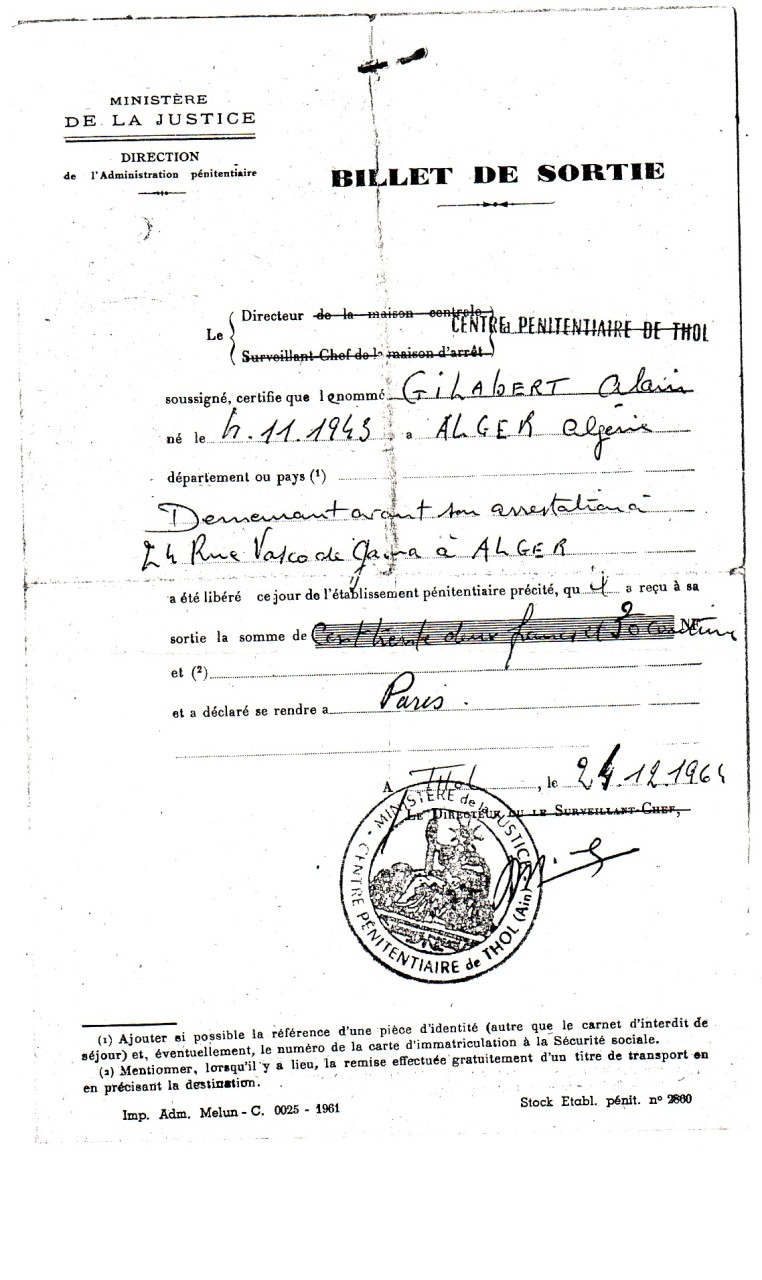 MINISTÈRE
DE LA JUSTICE
DIRECTION
de l'Administration pénitentiaire
BILLET DE SORTIE
Le
Directeur de la maison centrale
CENTRE PENITENTIAIRE DE THOL
Surveillant-Chef de la maison d'arrêt
soussigné, certifie que le nommé GILABERT Alain
né le 4.11.1943 a ALGER Algérie
département ou pays (1)
Demeurant avant son arrestation à
24 Rue Vasco de Gama à ALGER
a été libéré ce jour de l'établissement pénitentiaire précité, qu il a reçu à sa
sortie la somme de Cent trente deux francs et NF
et (2)
et a déclaré se rendre a Paris.
A Thol, le 24.12.1964
LE DIRECTEUR OU LE SURVEILLANT-CHEF,
MINISTÈRE de la JUSTICE
CENTRE PÉNITENTIAIRE de THOL (Ain)
(1) Ajouter si possible la référence d'une pièce d'identité (autre que le carnet d'interdit de
séjour) et, éventuellement, le numéro de la carte d'immatriculation à la Sécurité sociale.
(2) Mentionner, lorsqu'il y a lieu, la remise effectuée gratuitement d'un titre de transport en
en précisant la destination.
Imp. Adm. Melun - C. 0025 - 1961
Stock Etabl. pénit. nº 2860